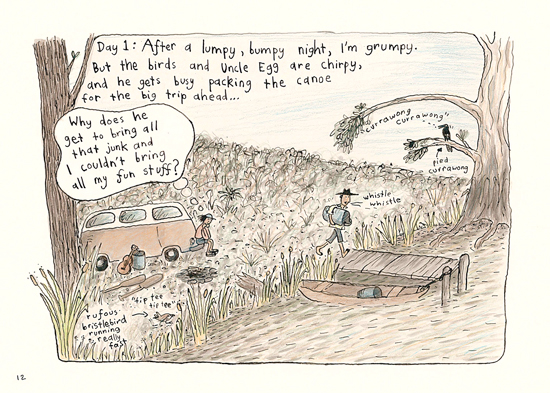 Day 1: After a lumpy, bumpy night, I'm grumpy.
But the birds and Uncle Egg are chirpy,
and he gets busy packing the canoe
for the big trip ahead...
Why does he
get to bring all
that junk and
I couldn't bring
all my fun stuff?
"currawong
currawong"
pied
currawong
whistle
whistle
"tip tee
tip tee"
rufous
bristlebird
running
really
fast
12